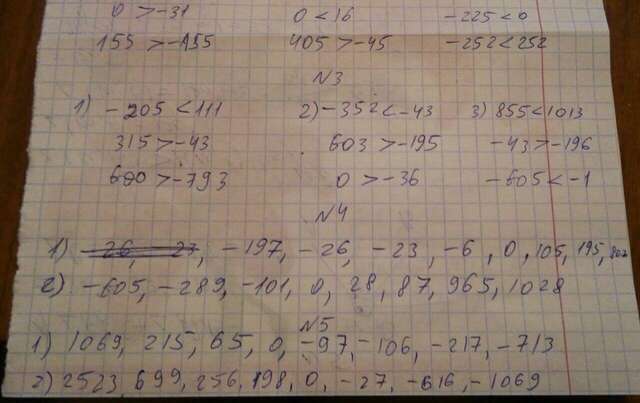 0 > -31 0 < 16 -225 < 0
155 > -155 405 > -45 -252 < 252
N3
1) -205 < 111 2) -352 < -43 3) 855 < 1013
315 > -43 603 > -195 -43 > -196
600 > -793 0 > -36 -605 < -1
N4
1) -26, -27, -197, -26, -23, -6, 0, 105, 195,
2) -605, -289, -101, 0, 28, 87, 965, 1028
N5
1) 1069, 215, 65, 0, -97, -106, -217, -713
2) 2523, 699, 256, 198, 0, -27, -616, -1069